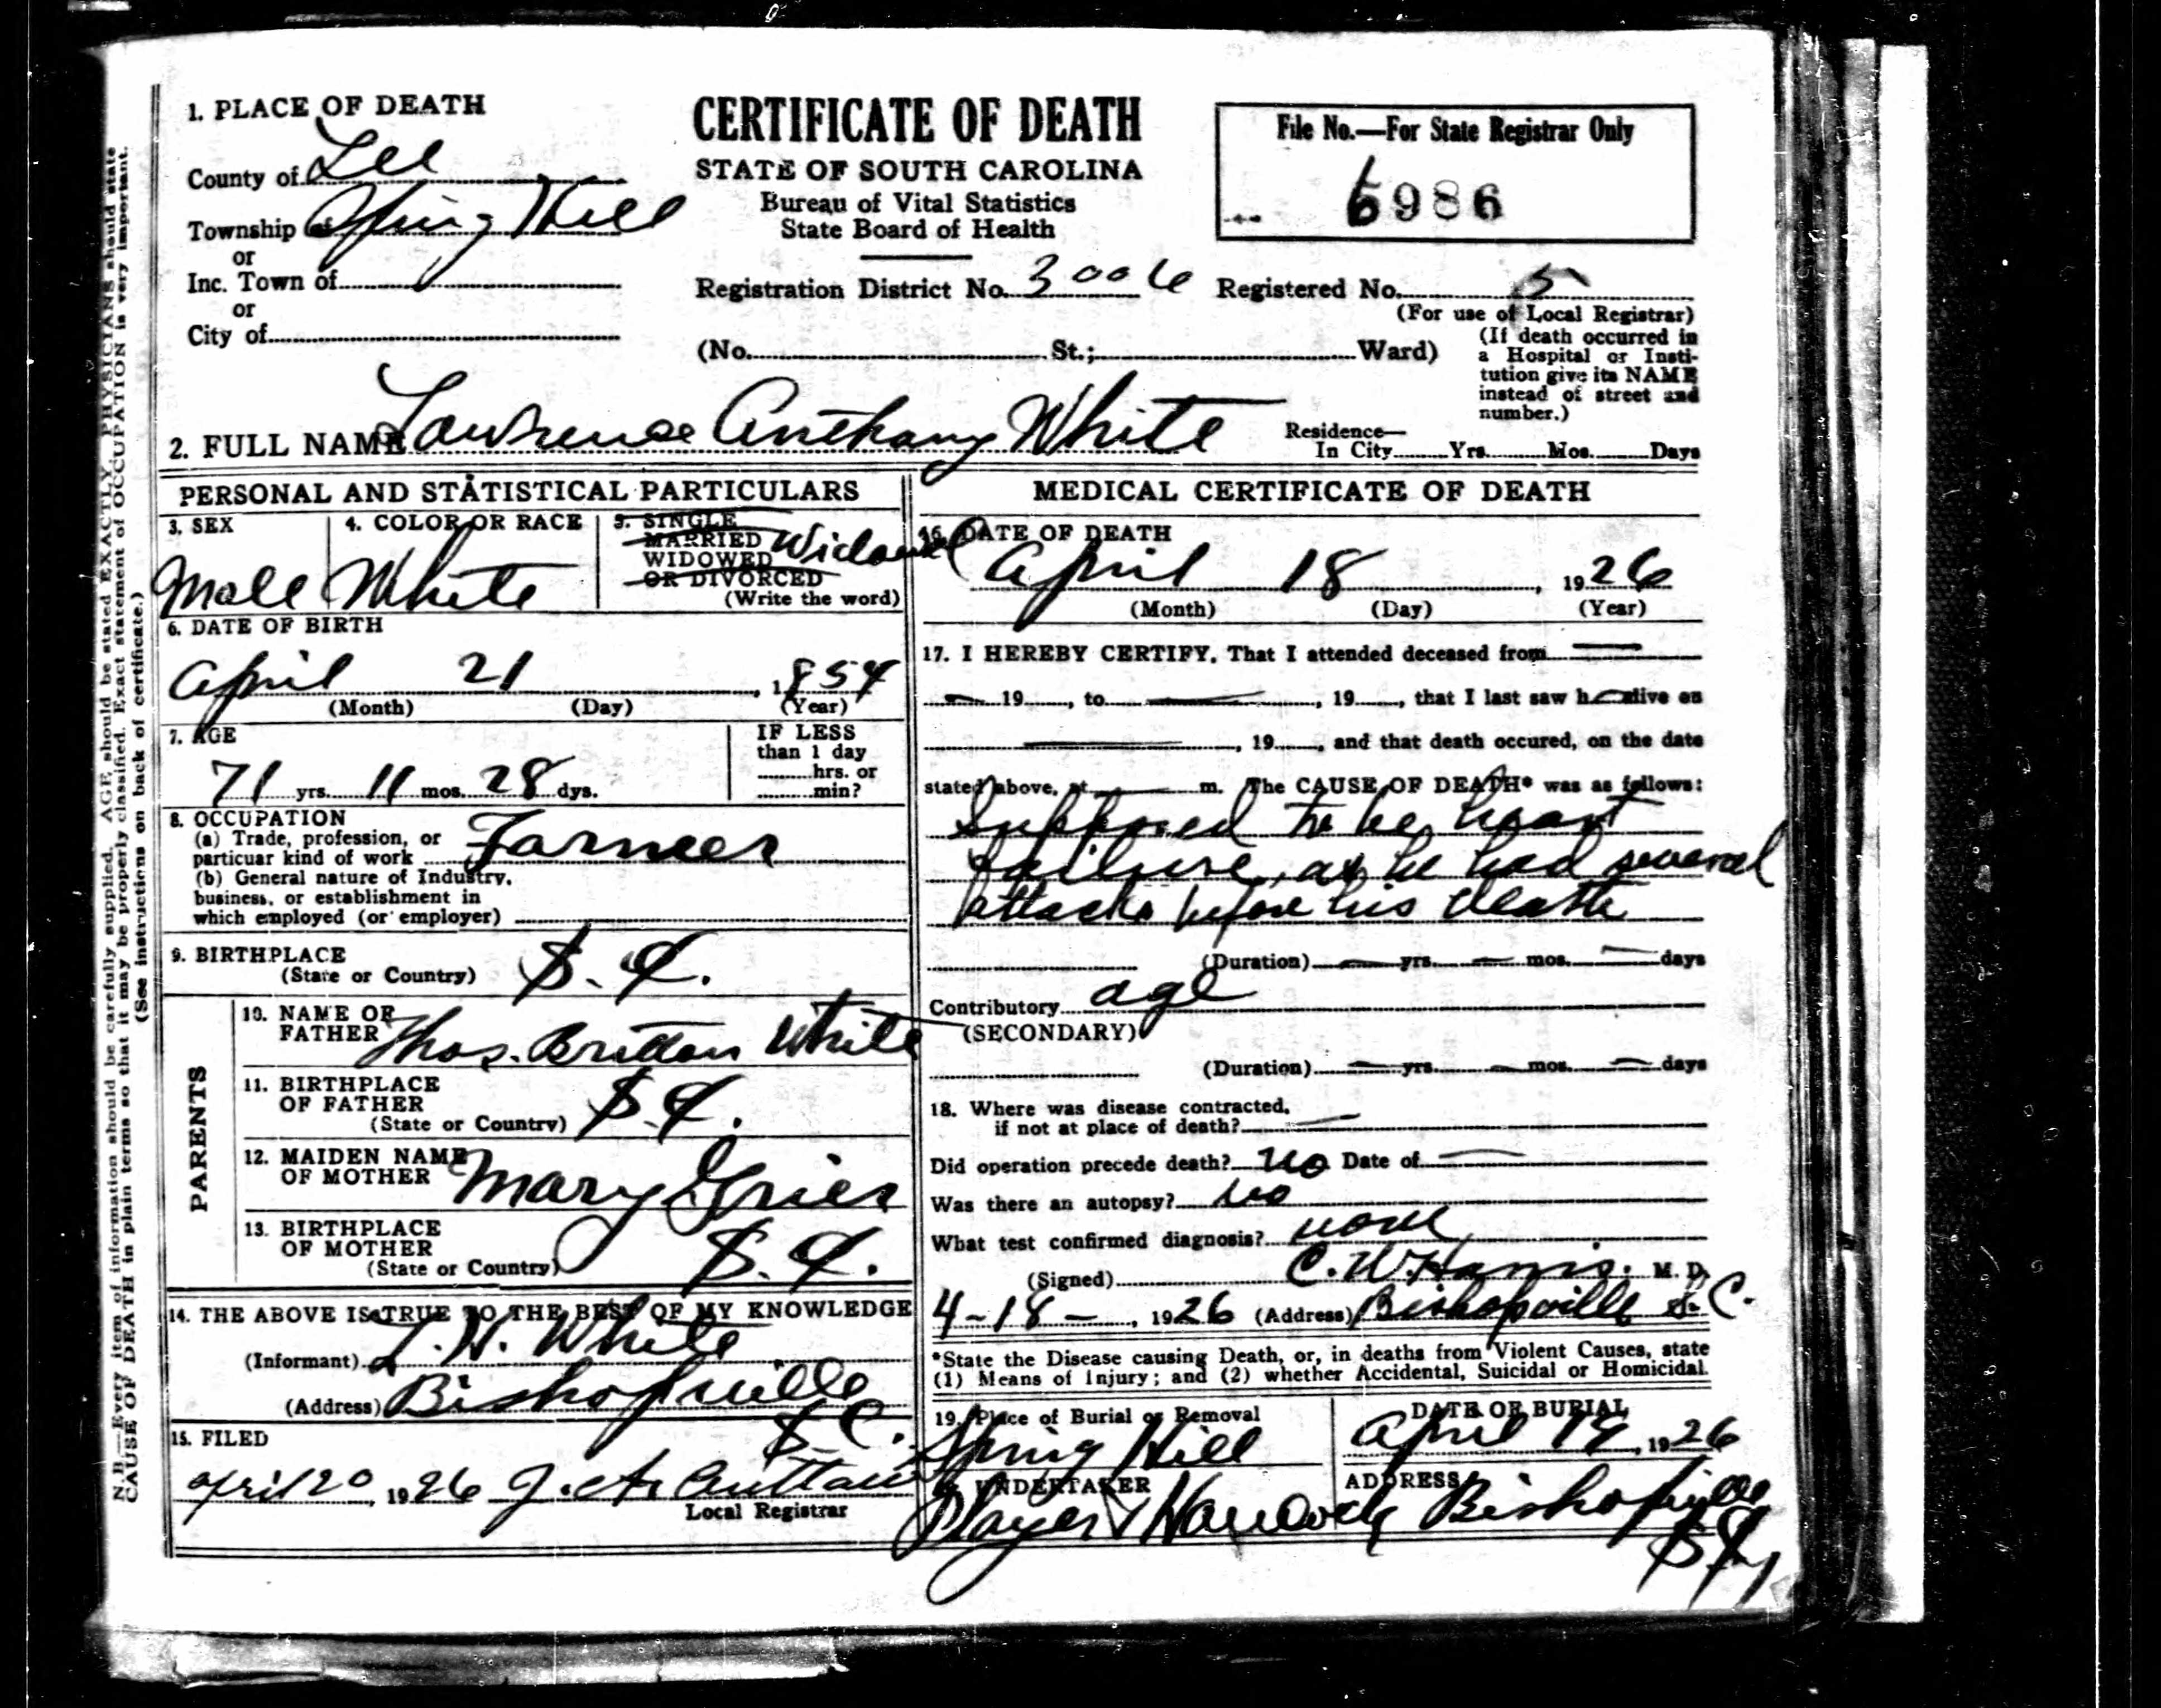 1. PLACE OF DEATH
County of Lee
Township of Spring Hill
or
Inc. Town of
or
City of
CERTIFICATE OF DEATH
STATE OF SOUTH CAROLINA
Bureau of Vital Statistics
State Board of Health
File No.—For State Registrar Only
6986
Registration District No. 3006 Registered No. 5
(For use of Local Registrar)
(No. St.; Ward)
(If death occurred in
a Hospital or Insti-
tution give its NAME
instead of street and
number.)
2. FULL NAME Lawrence Anthony White
Residence—
In City Yrs. Mos. Days
PERSONAL AND STATISTICAL PARTICULARS
3. SEX
Male
4. COLOR OR RACE
White
5. SINGLE
MARRIED
WIDOWED
OR DIVORCED
Widowed
(Write the word)
6. DATE OF BIRTH
April 21, 1854
(Month) (Day) (Year)
7. AGE
71 yrs. 11 mos. 28 dys.
IF LESS
than 1 day
hrs. or
min?
8. OCCUPATION
(a) Trade, profession, or
particuar kind of work Farmer
(b) General nature of Industry,
business, or establishment in
which employed (or employer)
9. BIRTHPLACE
(State or Country) S. C.
PARENTS
10. NAME OF
FATHER Thos. Britton White
11. BIRTHPLACE
OF FATHER
(State or Country) S. C.
12. MAIDEN NAME
OF MOTHER Mary Grier
13. BIRTHPLACE
OF MOTHER
(State or Country) S. C.
14. THE ABOVE IS TRUE TO THE BEST OF MY KNOWLEDGE
(Informant) White
(Address) Bishopville
S. C.
15. FILED
April 20, 1926 J. A.
Local Registrar
MEDICAL CERTIFICATE OF DEATH
16. DATE OF DEATH
April 18, 1926
(Month) (Day) (Year)
17. I HEREBY CERTIFY, That I attended deceased from —
— 19, to —, 19, that I last saw h— alive on
—, 19, and that death occured, on the date
stated above, at — m. The CAUSE OF DEATH* was as follows:
Supposed to be heart
failure, as he had several
attacks before his death
(Duration) — yrs. — mos. — days
Contributory age
(SECONDARY)
(Duration) — yrs. — mos. — days
18. Where was disease contracted,
if not at place of death? —
Did operation precede death? no Date of —
Was there an autopsy? no
What test confirmed diagnosis? none
(Signed) C. W. Harris. M. D.
4-18-, 1926 (Address) Bishopville S. C.
*State the Disease causing Death, or, in deaths from Violent Causes, state
(1) Means of injury; and (2) whether Accidental, Suicidal or Homicidal.
19. Place of Burial or Removal
Spring Hill
DATE OF BURIAL
April 19, 1926
UNDERTAKER
Player & Hancock
ADDRESS
Bishopville
S. C.
N. B.—Every item of information should be carefully supplied. AGE should be stated EXACTLY. PHYSICIANS should state
CAUSE OF DEATH in plain terms so that it may be properly classified. Exact statement of OCCUPATION is very important.
(See instructions on back of certificate.)